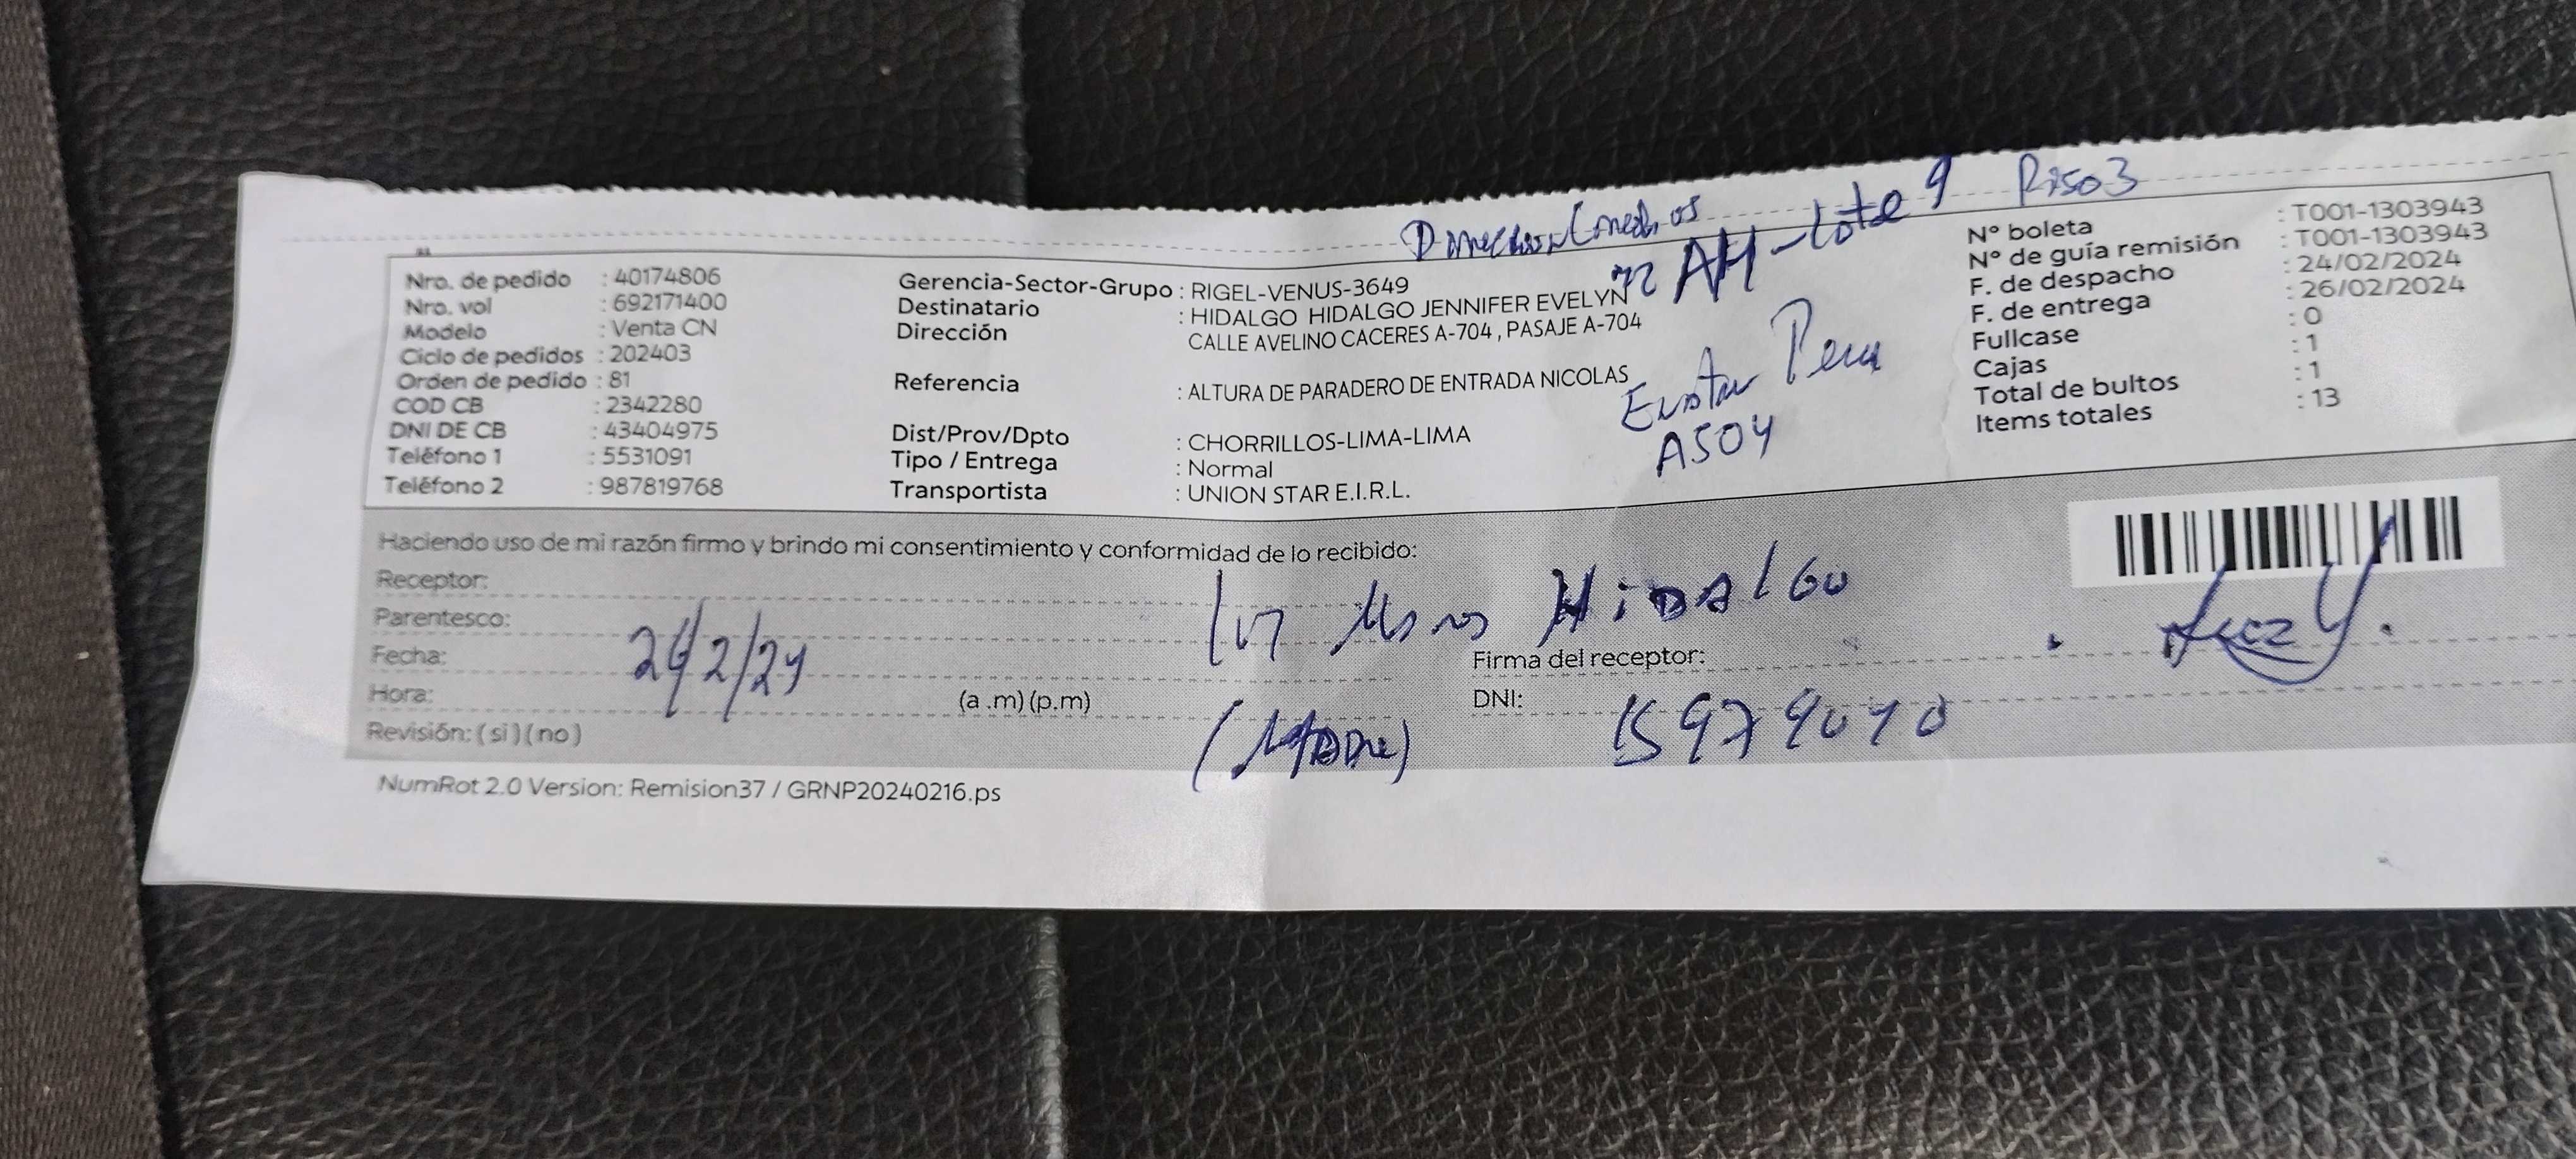 Piso 3
Lote 9
Nro. de pedido : 40174806
Nro. vol : 692171400
Modelo : Venta CN
Ciclo de pedidos : 202403
Orden de pedido : 81
COD CB : 2342280
DNI DE CB : 43404975
Teléfono 1 : 5531091
Teléfono 2 : 987819768
Gerencia-Sector-Grupo : RIGEL-VENUS-3649
Destinatario : HIDALGO HIDALGO JENNIFER EVELYN
Dirección CALLE AVELINO CACERES A-704 , PASAJE A-704
Referencia : ALTURA DE PARADERO DE ENTRADA NICOLAS
Dist/Prov/Dpto : CHORRILLOS-LIMA-LIMA
Tipo / Entrega : Normal
Transportista : UNION STAR E.I.R.L.
A504
N° boleta : T001-1303943
N° de guía remisión : T001-1303943
F. de despacho : 24/02/2024
F. de entrega : 26/02/2024
Fullcase : 0
Cajas : 1
Total de bultos : 1
Items totales : 13
Haciendo uso de mi razón firmo y brindo mi consentimiento y conformidad de lo recibido:
Receptor: Hidalgo
Parentesco:
Fecha: 26/2/24
Firma del receptor:
Hora: (a .m) (p.m)
DNI:
(Madre)
Revisión: ( si ) ( no )
NumRot 2.0 Version: Remision37 / GRNP20240216.ps